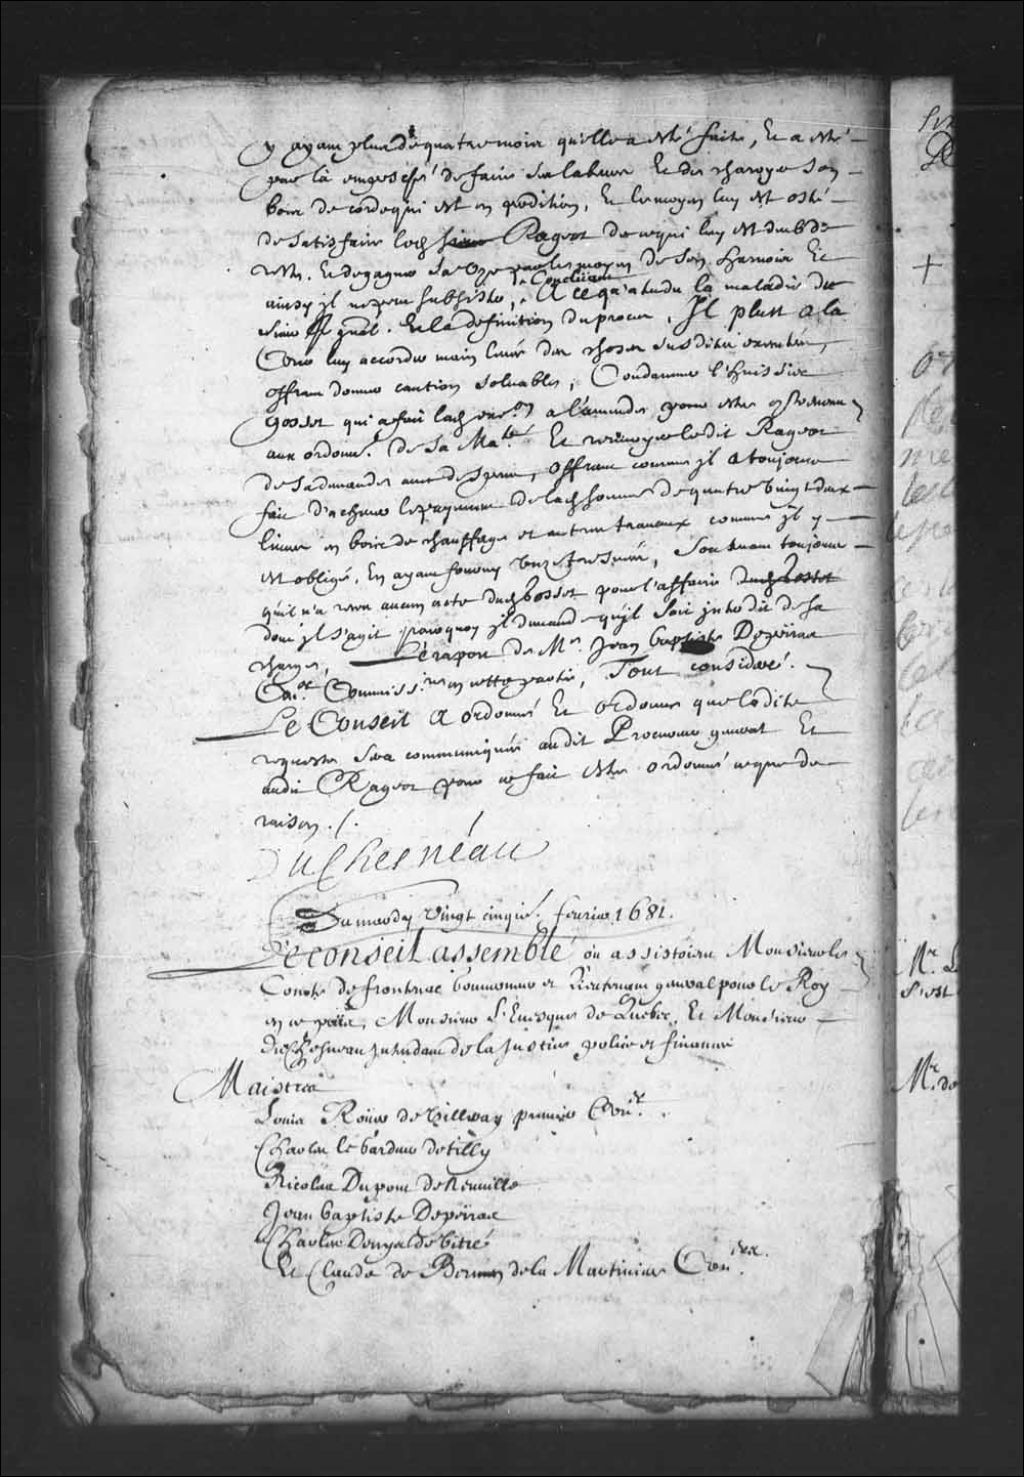 y ayant plus de quatre mois qu'elle a esté faite, Et a esté
par là empesché de faire sa labeure Et de charoyer son
bois de corde qui est en perdition, Et le moyen luy est osté
de satisfaire led. Rageot de ce qui luy est deub de
reste. Et de gagner sa vie par les moyen de son harnois Et
Concluant
ainsy il ne peut subsister, A ce qu'atendu la maladie du
sieur gnal. Et la definition du procur. Il plust a la
Cour luy accorder main levée des choses susdites executées,
offrant donner caution solvable, Condamner l'huissier
gosset qui a fait lad. exeon a l'amende, pour estre
aux ordonn. de Sa Maté Et renvoyer ledit Rageot
de sa demande avec despens, offrant comme il a toujours
fait d'achever le payement de lad. somme de quatre vingt deux
livres en bois de chauffage et autres travaux comme il y
est obligé, En ayant fourny, soutenant toujours
qu'il n'a reveu aucun acte dud. gosset pour l'affaire
dont il s'agit pourquoy il demande qu'il soit interdit de sa
charge, Le raport de Mr Jean baptiste Depeiras
Coner Commissre en cette partie, Tout consideré.
Le Conseil A ordonné Et ordonne que ladite
requeste sera communiquée audit Procureur general Et
audit Rageot pour ce fait estre ordonné ce que de
raison ./.
DuChesneau
Du mardy vingt cinqe. fevrier 1681.
Le conseil assemblé ou assistoient Monsieur le
Comte de frontenac Gouverneur et Lieutenant general pour le Roy
en ce païs, Monsieur L'Evesque de Quebec, Et Monsieur
DuChesneau Intendant de la Justice police et finances
Maistres
Louis Roüer de Villeray premier Coner.
Charles le Gardeur de Tilly
Nicolas Dupont de Neuville
Jean baptiste Depeiras
Charles Denys de Vitré
Et Claude de Bermen de la Martiniere Coners.
+
Mr.
s'est
Mr. de